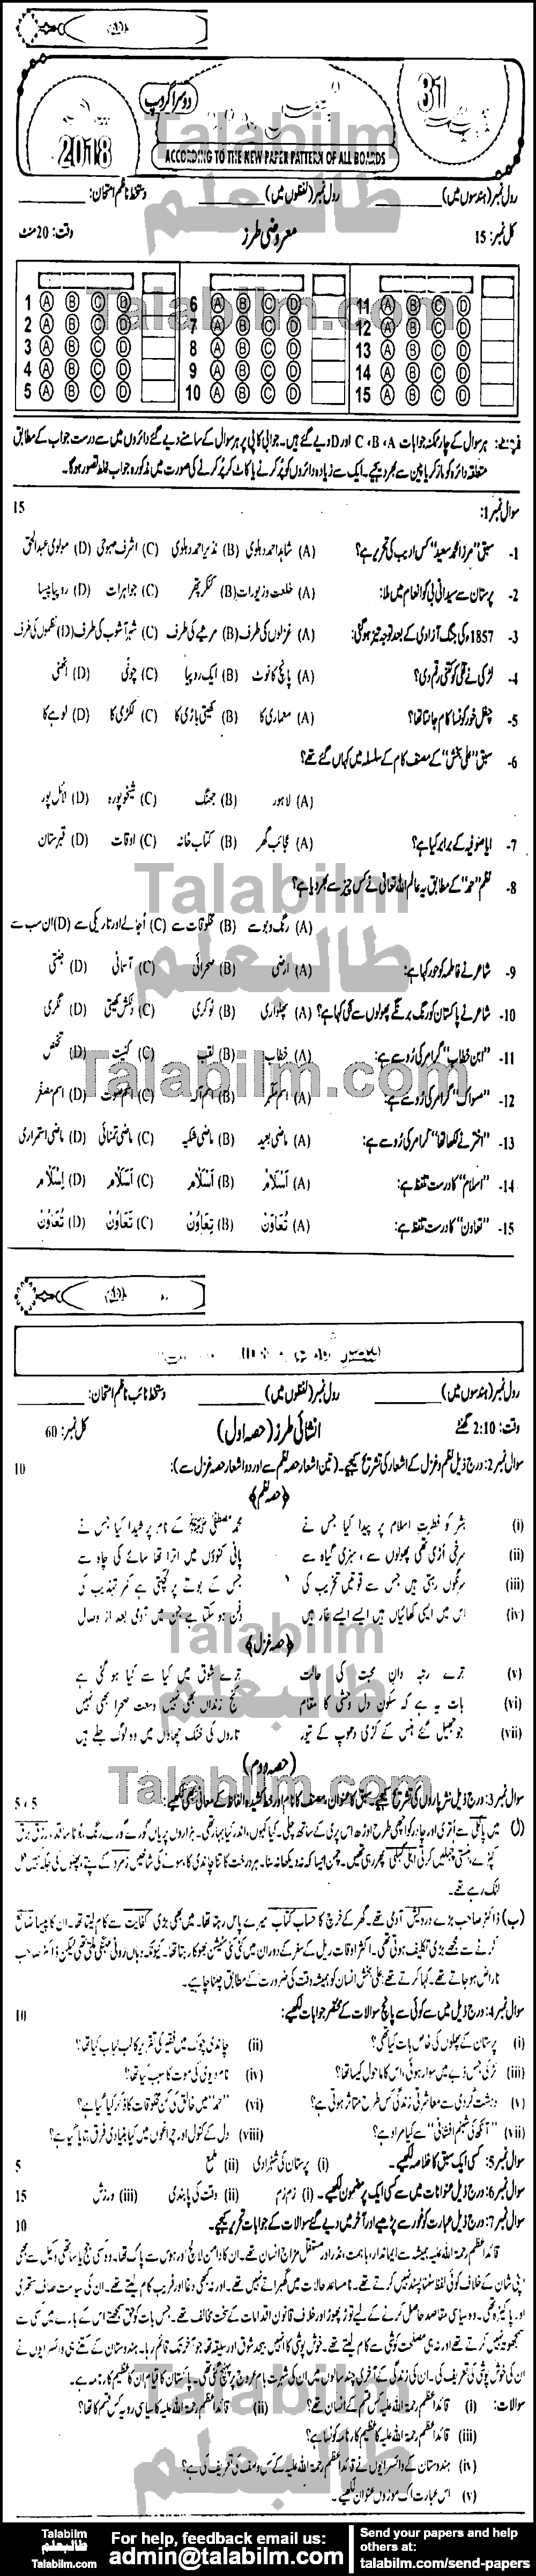 دوسرا گروپ
31
2018
ACCORDING TO THE NEW PAPER PATTERN OF ALL BOARDS
رول نمبر (ہندسوں میں) ________ رول نمبر (لفظوں میں) ________ دستخط ناظم امتحان: ________
کل نمبر: 15 معروضی طرز وقت: 20 منٹ
1 A B C D 6 A B C D 11 A B C D
2 A B C D 7 A B C D 12 A B C D
3 A B C D 8 A B C D 13 A B C D
4 A B C D 9 A B C D 14 A B C D
5 A B C D 10 A B C D 15 A B C D
ہر سوال کے چار ممکنہ جوابات A، B، C اور D دیے گئے ہیں۔ جوابی کاپی پر ہر سوال کے سامنے دیے گئے دائروں میں سے درست جواب کے مطابق
متعلقہ دائرہ کو مارکر یا پین سے بھر دیجیے۔ ایک سے زیادہ دائروں کو پُر کرنے یا کاٹ کر پُر کرنے کی صورت میں مذکورہ جواب غلط تصور ہوگا۔
سوال نمبر 1: 15
1- سبق "مرزا محمد سعید" کس ادیب کی تحریر ہے؟ (A) شاہد احمد دہلوی (B) نذیر احمد دہلوی (C) اشرف صبوحی (D) مولوی عبدالحق
2- پرستان سے سیدانی بی کو انعام میں ملا: (A) خلعت و زیورات (B) کنکر پتھر (C) جواہرات (D) روپیا پیسا
3- 1857ء کی جنگ آزادی کے بعد توجہ تیز ہو گئی: (A) غزلوں کی طرف (B) مرثیے کی طرف (C) شہر آشوب کی طرف (D) نظموں کی طرف
4- لڑکی نے قلی کو کتنی رقم دی؟ (A) پانچ کا نوٹ (B) ایک روپیا (C) چونی (D) اٹھنی
5- چغل خور کون سا کام جانتا تھا؟ (A) معماری کا (B) کھیتی باڑی کا (C) لکڑی کا (D) لوہے کا
6- سبق "علی بخش" کے مصنف کام کے سلسلہ میں کہاں گئے تھے؟
(A) لاہور (B) جھنگ (C) شیخوپورہ (D) لائل پور
7- ایا صوفیہ کے برابر کیا ہے؟ (A) عجائب گھر (B) کتاب خانہ (C) اوقات (D) قبرستان
8- نظم "حمد" کے مطابق یہ عالم اللہ تعالیٰ نے کس چیز سے بھر دیا ہے؟
(A) رنگ و بو سے (B) مخلوقات سے (C) اُجالے اور تاریکی سے (D) ان سب سے
9- شاعر نے فاطمہ کو حور کہا ہے: (A) ارضی (B) صحرائی (C) آسمانی (D) جنتی
10- شاعر نے پاکستان کو رنگ برنگے پھولوں سے سجی کہا ہے؟ (A) پھلواری (B) ٹوکری (C) دلکش کھیتی (D) نگری
11- "ابن خطاب" گرامر کی رُو سے ہے: (A) خطاب (B) لقب (C) کنیت (D) تخلص
12- "مسواک" گرامر کی رُو سے ہے: (A) اسم مکبر (B) اسم آلہ (C) اسم صوت (D) اسم مصغر
13- "اختر نے لکھا تھا" گرامر کی رُو سے ہے: (A) ماضی بعید (B) ماضی شکیہ (C) ماضی تمنائی (D) ماضی استمراری
14- "اسلام" کا درست تلفظ ہے: (A) اَسْلَامْ (B) اُسْلَامْ (C) اَسلَام (D) اِسْلَام
15- "تعاون" کا درست تلفظ ہے: (A) تُعَاوَن (B) تِعَاوُن (C) تَعَاوُن (D) تُعَاوُن
رول نمبر (ہندسوں میں) ________ رول نمبر (لفظوں میں) ________ دستخط نائب ناظم امتحان: ________
وقت: 2:10 گھنٹے انشائی طرز (حصہ اول) کل نمبر: 60
سوال نمبر 2: درج ذیل نظم و غزل کے اشعار کی تشریح کیجیے۔ (تین اشعار حصہ نظم سے اور دو اشعار حصہ غزل سے): 10
﴿حصہ نظم﴾
(i) بشر کو فطرتِ اسلام پر پیدا کیا جس نے محمد مصطفیٰ ﷺ کے نام پر شیدا کیا جس نے
(ii) سرخی اڑی تھی پھولوں سے، سبزی گیاہ سے پانی کنوؤں میں اترا تھا سائے کی چاہ سے
(iii) سرنگوں رہتی ہیں جس سے قوتیں تخریب کی جس کے بوتے پر لچکتی ہے کمر تہذیب کی
(iv) اس میں ایسی کھائیاں ہیں ایسے ایسے غار ہیں دفن ہو سکتا ہے جن میں آدمی بعد از وصال
﴿حصہ غزل﴾
(v) ترے رتبہ دانِ محبت کی حالت ترے شوق میں کیا سے کیا ہو گئی ہے
(vi) بات یہ ہے کہ سکونِ دل وحشی کا مقام کنج زنداں بھی نہیں وسعت صحرا بھی نہیں
(vii) جو جھیل گئے ہنس کے کڑی دھوپ کے تیور تاروں کی خنک چھاؤں میں وہ لوگ جلے ہیں
(حصہ دوم)
سوال نمبر 3: درج ذیل نثر پاروں کی تشریح کیجیے۔ سبق کا عنوان، مصنف کا نام اور خط کشیدہ الفاظ کے معانی بھی لکھیے: 5، 5
(ا) میں پالکی سے اتری اور چادر کو اچھی طرح اوڑھ اس پری کے ساتھ چلی۔ کیا کہوں، اندر کیا بہار تھی۔ ہزاروں پریاں گورے گورے رنگ، بوٹا سا قد، زرق برق
کپڑے، ہنستی چہلیں کرتی اہلی گہلی پھر رہی تھیں۔ چمن ایسا کہ نہ دیکھا نہ سنا۔ ہر درخت کا تنا چاندی کا، سونے کی شاخیں زمرد کے پتے، پھلوں کی جگہ لعل
لٹک رہے تھے۔
(ب) ڈاکٹر صاحب بڑے درویش آدمی تھے۔ گھر کے خرچ کا حساب کتاب میرے پاس رہتا تھا۔ میں بھی بڑی کفایت سے کام لیتا تھا۔ ان کا پیسا ضائع
کرنے سے مجھے بڑی تکلیف ہوتی تھی۔ اکثر اوقات ریل کے سفر کے دوران میں کئی کئی سٹیشن بھوکا رہتا تھا۔ کیونکہ وہاں روٹی مہنگی ملتی تھی لیکن ڈاکٹر صاحب
ناراض ہو جاتے تھے۔ کہا کرتے تھے: علی بخش انسان کو ہمیشہ وقت کی ضرورت کے مطابق چلنا چاہیے۔
سوال نمبر 4: درج ذیل میں سے کوئی سے پانچ سوالات کے مختصر جوابات لکھیے: 10
(i) پرستان کے پھلوں کی خاص بات کیا تھی؟ (ii) چاندنی چوک میں فقیر کی تقریر کا لب لباب کیا تھا؟
(iii) لڑکی جس ڈبے میں سوار ہوئی، اس کا ماحول کیسا تھا؟ (iv) نام دیو مالی کی موت کا سبب کیا تھا؟
(v) دہشت گردی سے معاشرتی زندگی کس طرح متاثر ہوتی ہے؟ (vi) "حمد" میں خالق کی کن مخلوقات کا ذکر کیا گیا ہے؟
(vii) "آنکھ کی شبنم افشانی" سے کیا مراد ہے؟ (viii) دل کے کنول اور چراغوں میں کیا بنیادی فرق بتایا گیا ہے؟
سوال نمبر 5: کسی ایک سبق کا خلاصہ لکھیے۔ (i) پرستان کی شہزادی (ii) ملمع 5
سوال نمبر 6: درج ذیل عنوانات میں سے کسی ایک پر مضمون لکھیے۔ (i) زم زم (ii) وقت کی پابندی (iii) ورزش 15
سوال نمبر 7: درج ذیل عبارت کو غور سے پڑھیے اور آخر میں دیے گئے سوالات کے جوابات تحریر کیجیے۔ 10
قائداعظم رحمۃ اللہ علیہ ہمیشہ سے ایماندار، باہمت، نڈر اور مستقل مزاج انسان تھے۔ ان کا دامن لالچ اور ہوس سے پاک تھا۔ وہ کسی جج یا ساتھی وکیل سے بھی
اپنی شان کے خلاف کوئی لفظ سننا پسند نہیں کرتے تھے۔ نامساعد حالات میں گھبراتے نہیں تھے۔ اور نہ کبھی دغا اور فریب کام لیتے تھے۔ ان کی سیاست صاف ستھری
اور پاکیزہ تھی۔ وہ سیاسی مقاصد حاصل کرنے کے لیے توڑ پھوڑ اور خلاف قانون اقدامات کے سخت مخالف تھے۔ جس بات کو حق سمجھتے اس کے بارے میں کسی سے
سمجھوتہ نہیں کرتے تھے اور نہ ہی مصلحت کوشی سے کام لیتے تھے۔ خوش پوشی کا انہیں بیحد شوق اور سلیقہ تھا جو آخر تک قائم رہا۔ ہندوستان کے کتنے ہی وائسرایوں نے
ان کی خوش پوشی کی تعریف کی۔ ان کی زندگی کے آخری چند سالوں میں ان کی شہرت بام عروج پر پہنچ گئی تھی۔ پاکستان کا قیام ان کا عظیم کارنامہ ہے۔
سوالات: (i) قائداعظم رحمۃ اللہ علیہ کس قسم کے انسان تھے؟ (ii) قائداعظم رحمۃ اللہ علیہ کا سیاسی رویہ کس قسم کا تھا؟
(iii) قائداعظم رحمۃ اللہ علیہ کا عظیم کارنامہ کونسا ہے؟
(iv) ہندوستان کے وائسرایوں نے قائداعظم رحمۃ اللہ علیہ کے کس وصف کی تعریف کی ہے؟
(v) اس عبارت کا موزوں عنوان لکھیے۔
Talabilm
طالبعلم
Talabilm.com
For help, feedback email us:
admin@talabilm.com
Send your papers and help others at:
talabilm.com/send-papers